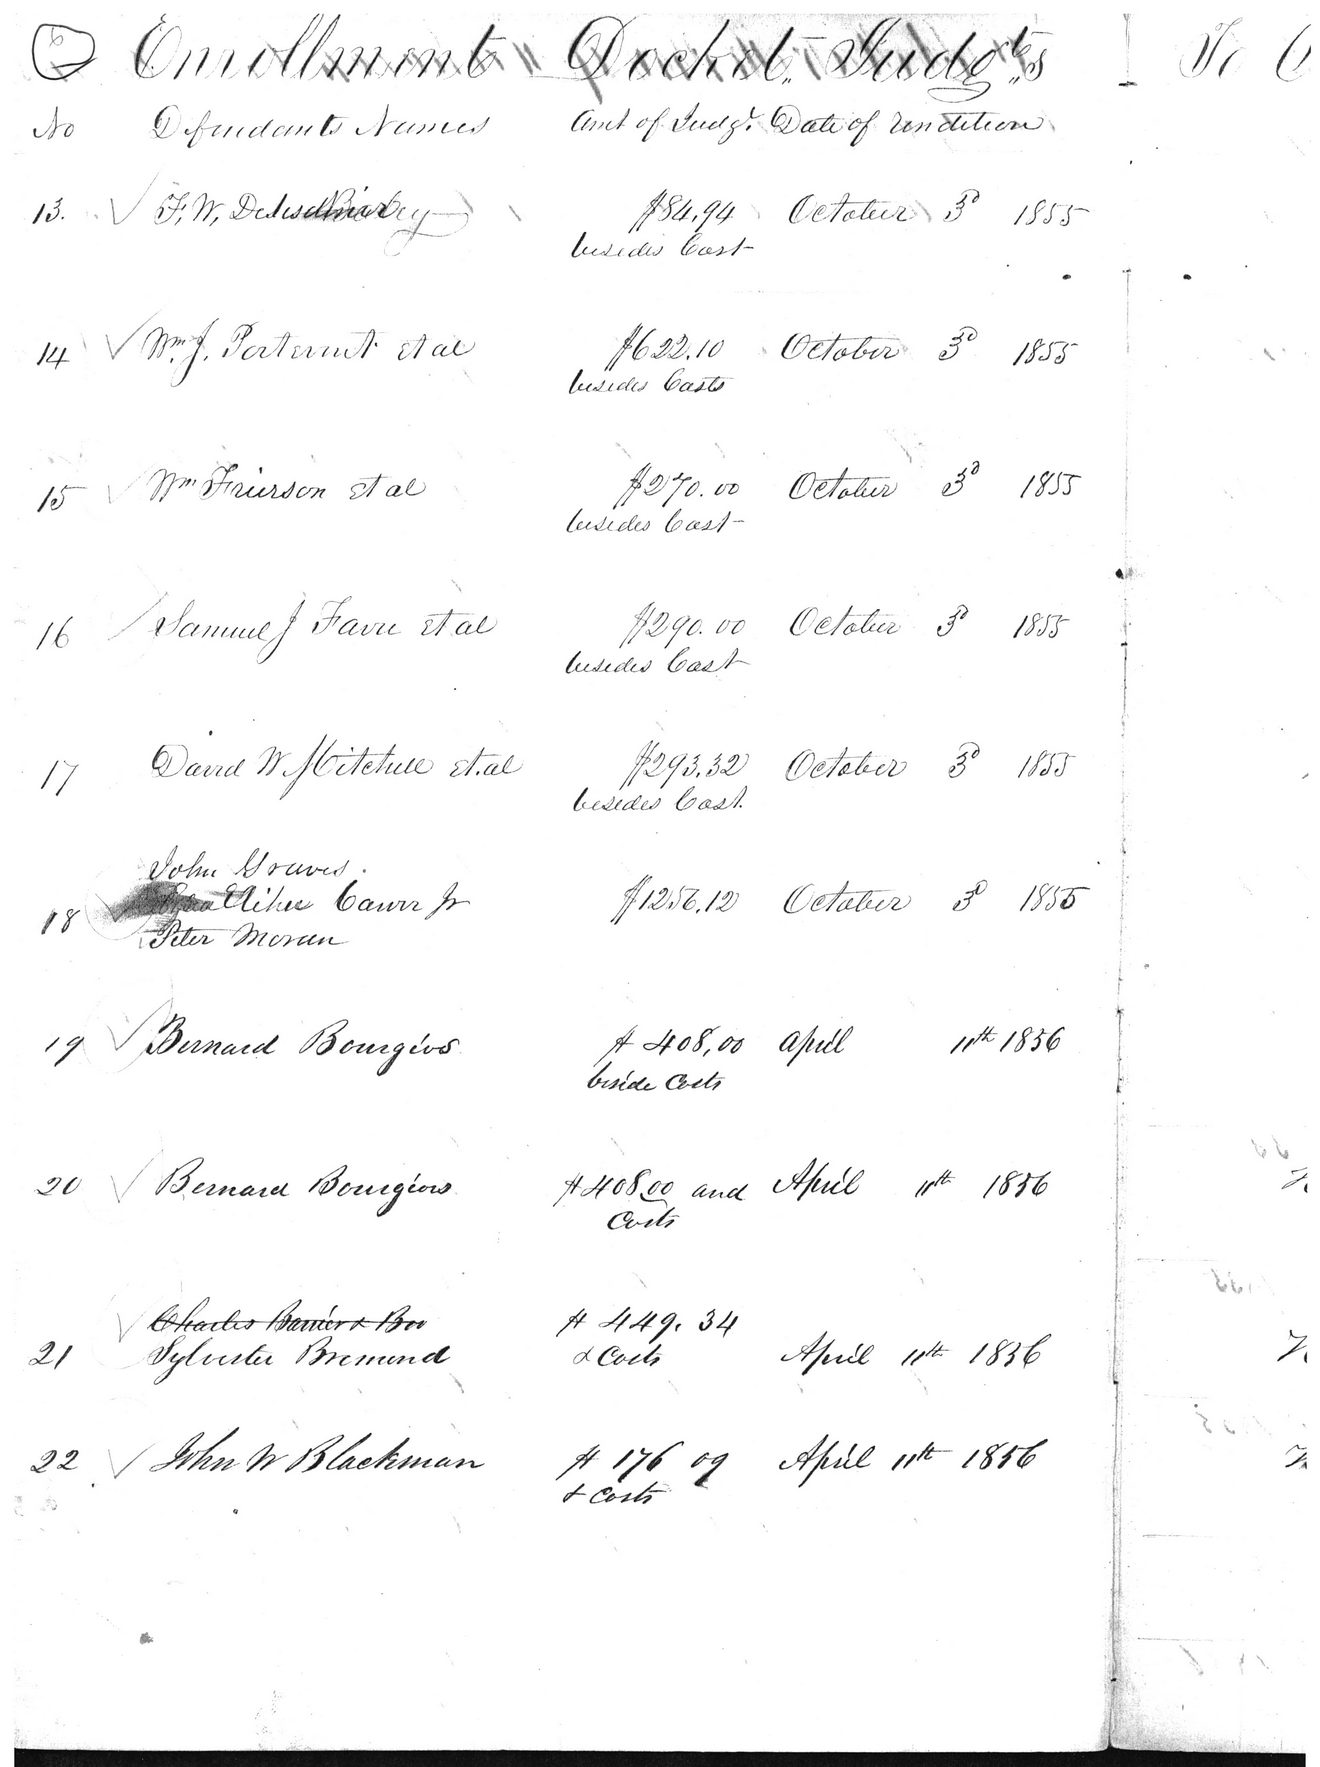 Enrollment Docket Judgts
No Defendants Names Amt of Judgt. Date of rendition
13. F. W. $84.94 October 3d 1855
besides Cost
14 Wm. J. Portevent et al $622.10 October 3d 1855
besides Costs
15 Wm Frierson et al $270.00 October 3d 1855
besides Cost
16 Samuel J Favre et al $290.00 October 3d 1855
besides Cost
17 David W Mitchell et.al $293.32 October 3d 1855
besides Cost.
John Graves.
18 Elihu Carver Jr $1256.12 October 3d 1855
Peter Moran
19 Bernard Bourgeois $408,00 April 11th 1856
beside Costs
20 Bernard Bourgeois $408.00 and April 11th 1856
Costs
Charles $449.34
21 Sylvester Bremond & Costs April 11th 1856
22 John W Blackman $176 09 April 11th 1856
& Costs